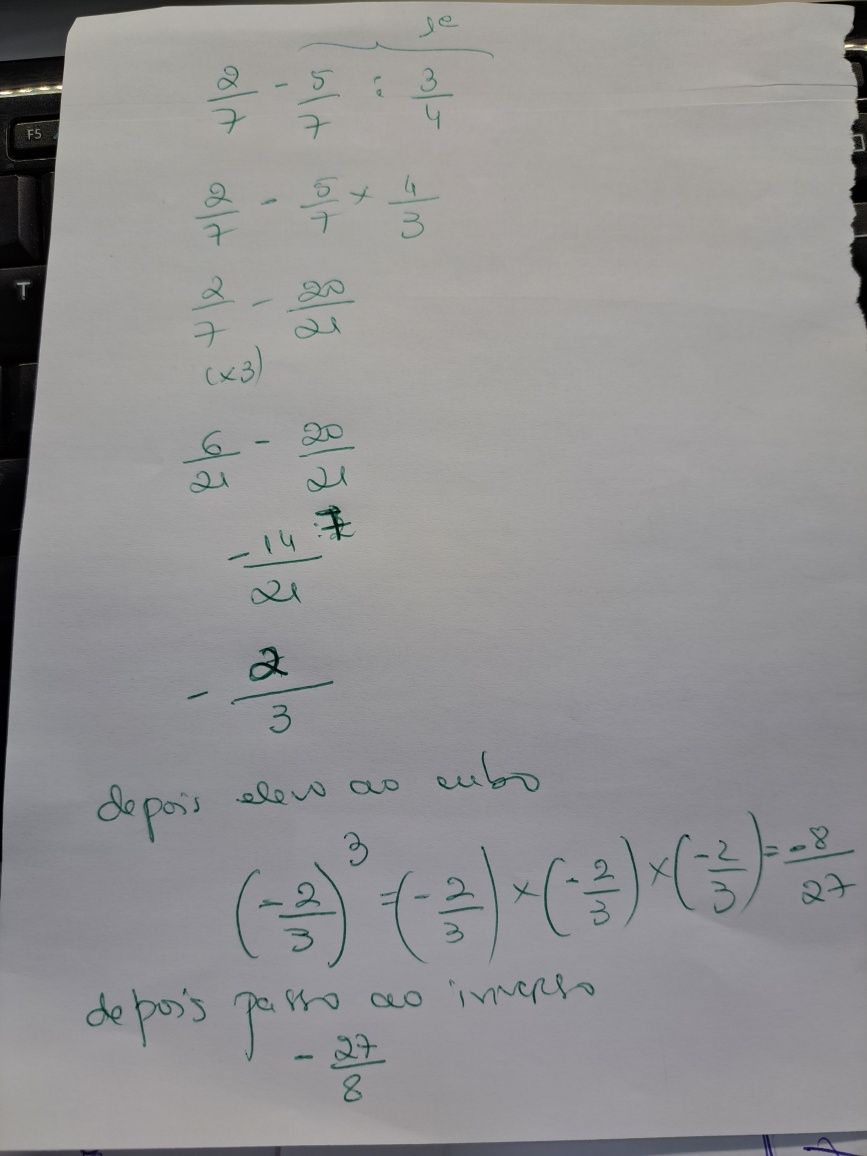 1º
2/7 - 5/7 : 3/4
2/7 - 5/7 × 4/3
2/7 - 20/21
(×3)
6/21 - 20/21
-14/21 :7
- 2/3
depois elevo ao cubo
(-2/3)³ = (-2/3) × (-2/3) × (-2/3) = -8/27
depois passo ao inverso
- 27/8
F5
T